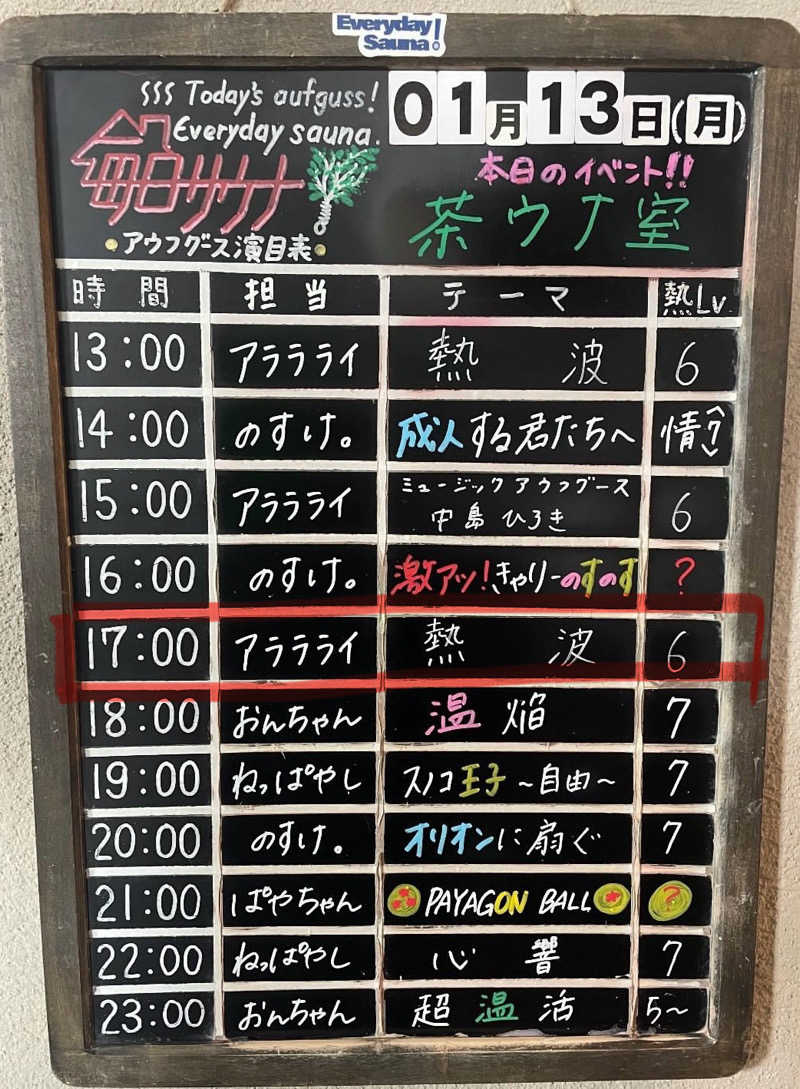 Everyday
Sauna!
Today's aufguss!
Everyday sauna.
毎日サウナ
アウフグース演目表
01月13日(月)
本日のイベント!!
茶ウナ室
時間 担当 テーマ 熱Lv.
13:00 アララライ 熱波 6
14:00 のすけ。 成人する君たちへ 情熱
15:00 アララライ ミュージックアウフグース
中島ひろき 6
16:00 のすけ。 激アツ!きゃりーのすのす ?
17:00 アララライ 熱波 6
18:00 おんちゃん 温焔 7
19:00 ねっぱやし スノコ王子~自由~ 7
20:00 のすけ。 オリオンに扇ぐ 7
21:00 ぱやちゃん PAYAGON BALL ?
22:00 ねっぱやし 心響 7
23:00 おんちゃん 超温活 5~